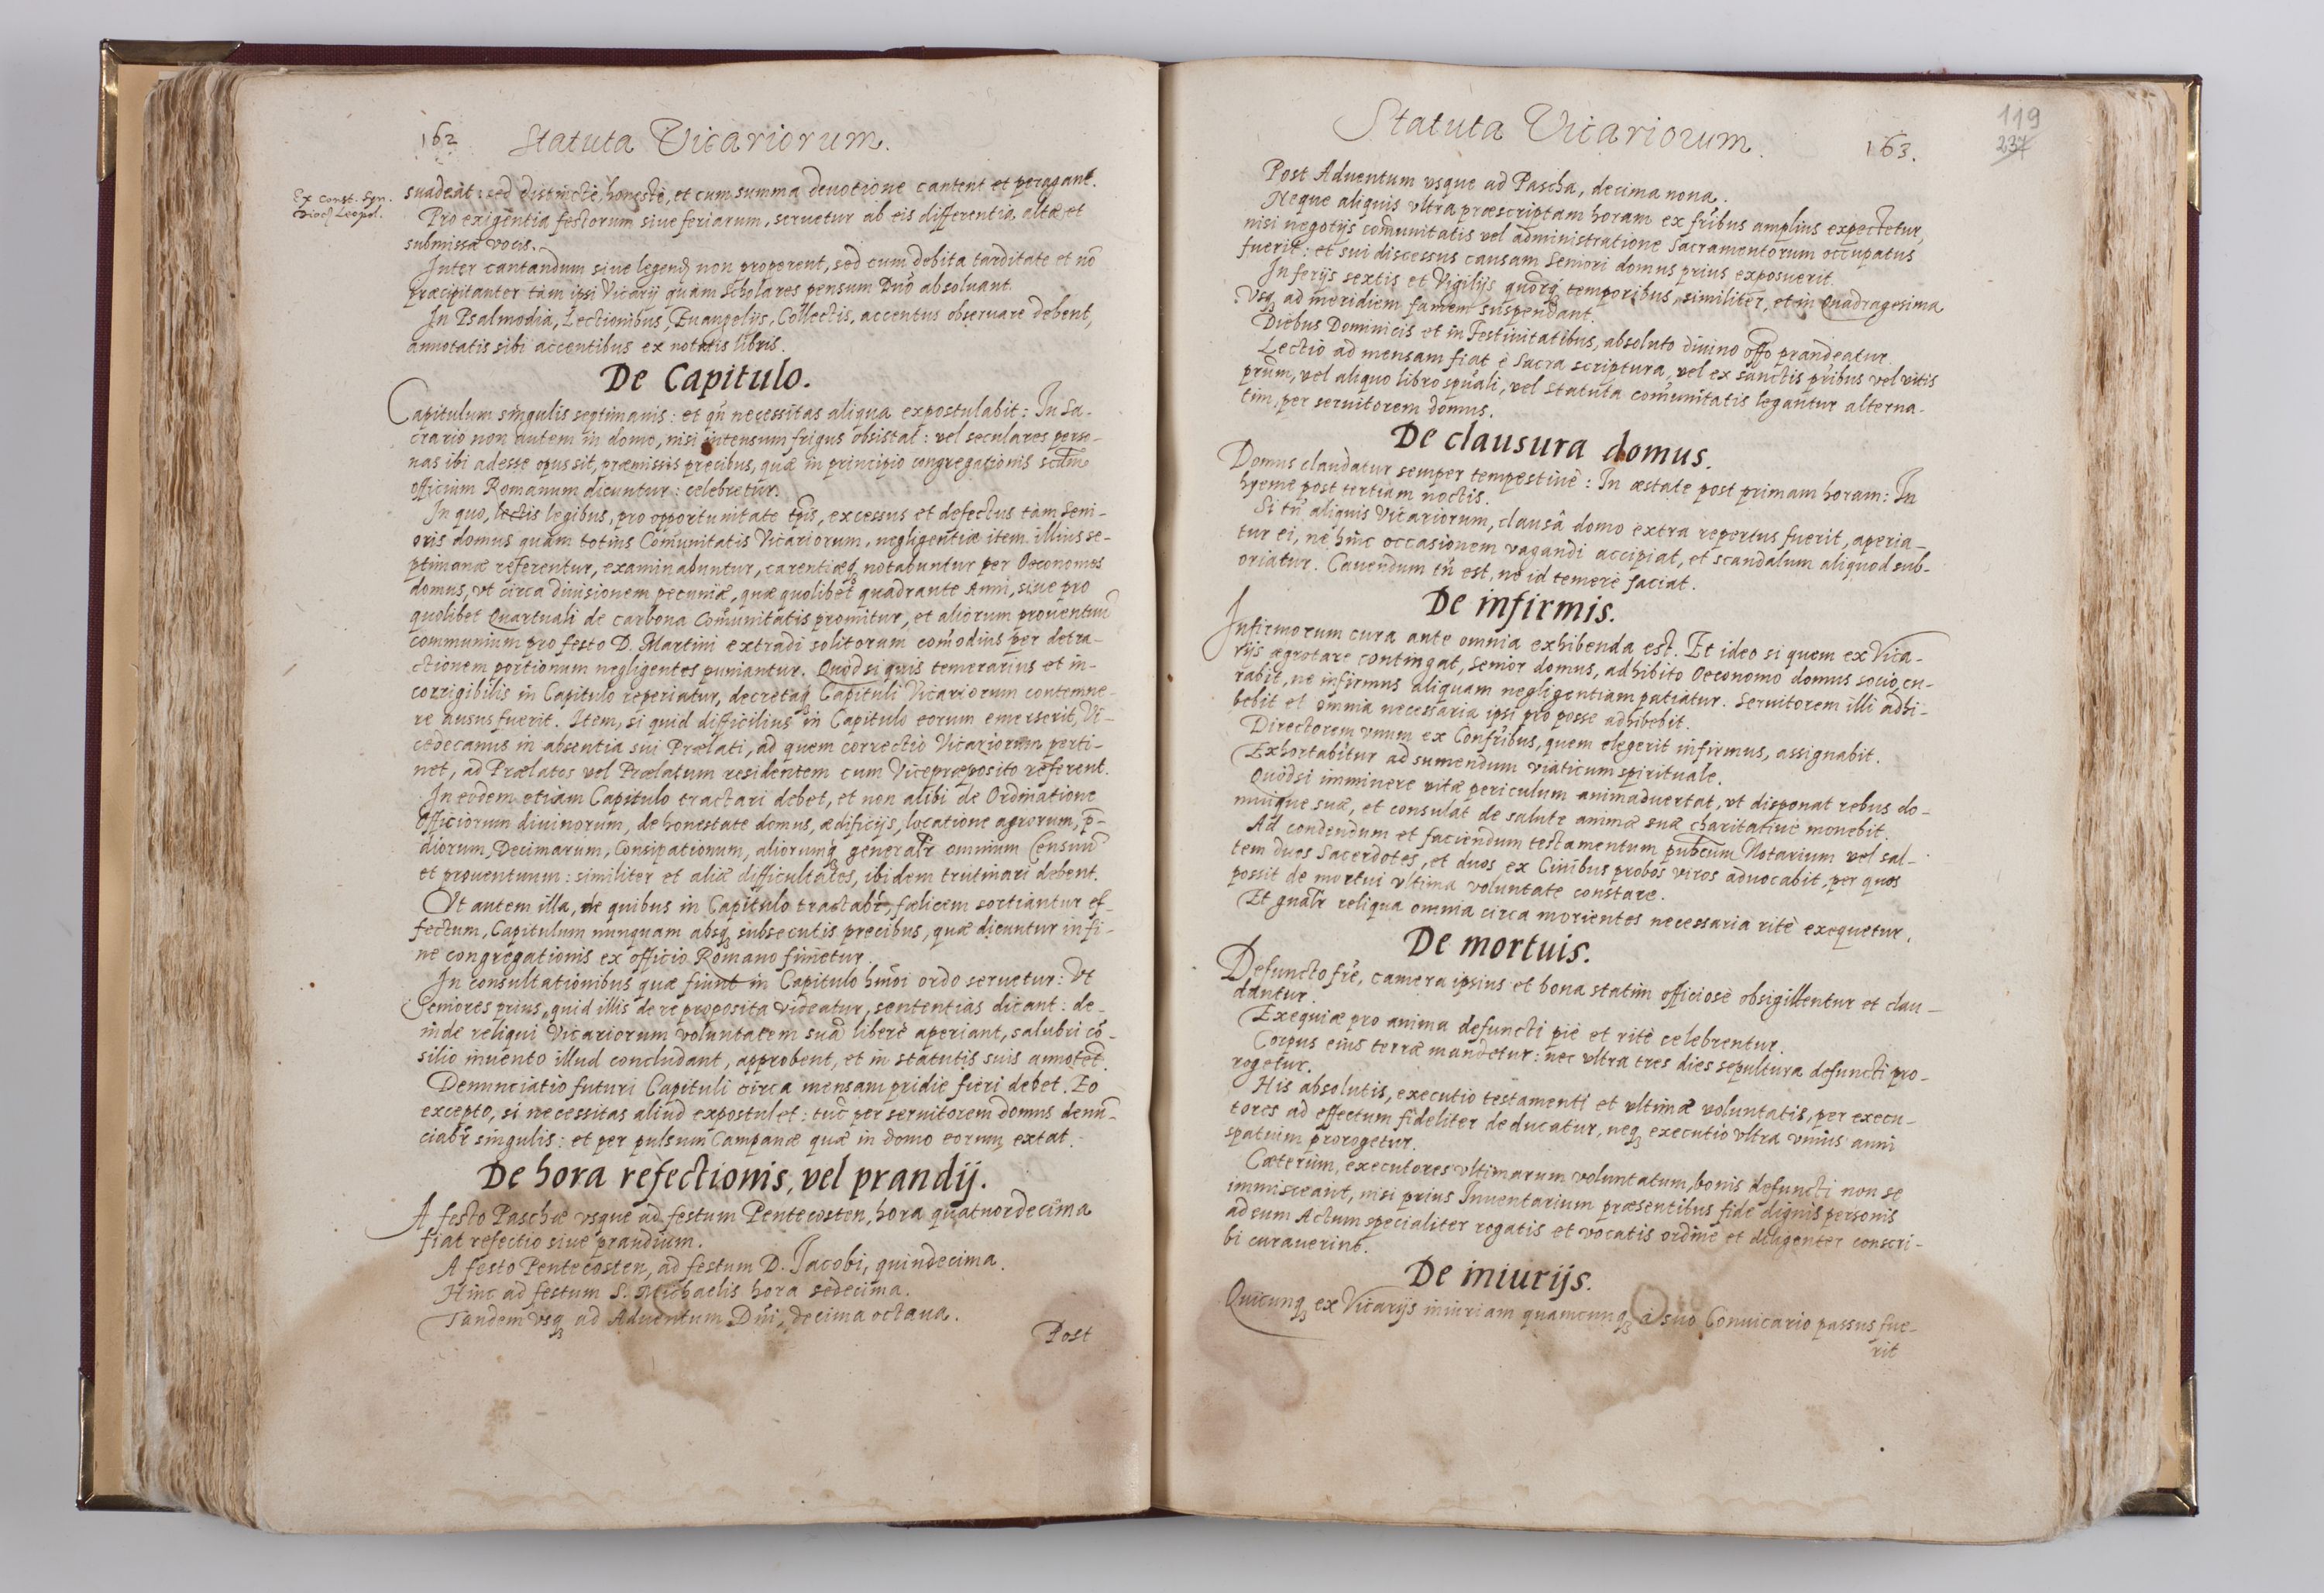 162 Statuta Vicariorum.
Ex Const. Syn.
Dioec Leopol.
suadeat: sed distinctè, honestè, et cum summa deuotione cantent et peragant.
Pro exigentia festorum siue feriarum, seruetur ab eis differentia, altæ et
submissæ vocis.
Inter cantandum siue legend non properent, sed cum debita tarditate et nō
præcipitanter tàm ipsi Vicarij quàm Scholares pensum absoluant.
In Psalmodia, Lectionibus, Euangelijs, Collectis, accentus obseruare debent,
annotatis sibi accentibus ex notatis libris.
De Capitulo.
Capitulum singulis septimanis: et qn̄ necessitas aliqua expostulabit: In Sa-
crario non autem in domo, nisi intensum frigus obsistat: vel seculares perso-
nas ibi adesse opus sit, præmissis precibus, quæ in principio congregationis scdm̄
officium Romanum dicuntur: celebretur.
In quo, lectis legibus, pro opportunitate tp̄is, excessus et defectus tàm Seni-
oris domus quàm totius Com̄unitatis Vicariorum, negligentiæ item illius se-
ptimanæ referentur, examinabuntur, carentiæq₃ notabuntur per Oeconomos
domus, vt circa diuisionem pecuniæ, quæ quolibet quadrante Anni, siue pro
quolibet Quartuali de carbona Com̄unitatis promitur, et aliorum prouentuū
communium pro festo D. Martini extradi solitorum com̄odius per detra-
ctionem portionum negligentes puniantur. Quòd si quis temerarius et in-
corrigibilis in Capitulo reperiatur, decretaq₃ Capituli Vicariorum contemne-
re ausus fuerit. Item, si quid difficilius in Capitulo eorum emerserit, Vi-
cedecanus in absentia sui Prælati, ad quem correctio Vicariorum perti-
net, ad Prælatos vel Prælatum residentem cum Vicepræposito referent.
In eodem etiam Capitulo tractari debet, et non alibi de Ordinatione
Officiorum diuinorum, de honestate domus, ædificijs, locatione agrorum, p̄-
diorum, Decimarum, Consipationum, aliorumq₃ generalr̄ omnium Censuū
et prouentuum: similiter et aliæ difficultates, ibidem trutinari debent.
Vt autem illa, de quibus in Capitulo tractabr̄, fælicem sortiantur ef-
fectum, Capitulum nunquam absq₃ subsecutis precibus, quæ dicuntur in fi-
ne congregationis ex officio Romano finietur.
In consultationibus quæ fiunt in Capitulo hmōi ordo seruetur: Vt
Seniores prius, quid illis de re proposita videatur, sententias dicant: de-
inde reliqui Vicariorum voluntatem suā liberè aperiant, salubri cō-
silio inuento illud concludant, approbent, et in statutis suis annotēt.
Denunciatio futuri Capituli circa mensam pridie fieri debet. Eo
excepto, si necessitas aliud expostulet: tūc per seruitorem domus denū-
ciabr̄ singulis: et per pulsum Campanæ quæ in domo eorum, extat.
De hora refectionis, vel prandij.
A festo Paschæ vsque ad festum Pentecosten, hora quatuordecima
fiat refectio siue prandium.
A festo Pentecosten, ad festum D. Jacobi, quindecima.
Hinc ad festum S. Michaelis hora sedecima.
Tandem vsq₃ ad Aduentum Dn̄i, decima octaua.
Post
Statuta Vicariorum. 163.
119
237
Post Aduentum vsque ad Pascha, decima nona.
Neque aliquis vltra præscriptam horam ex fribus amplius expectetur,
nisi negotijs com̄unitatis vel administratione Sacramentorum occupatus
fuerit: et sui discessus causam Seniori domus prius exposuerit.
In ferijs sextis et Vigilijs quorq₃ temporibus, similiter, et in Quadragesima
Vsq₃ ad meridiem famem suspendant.
Diebus Dominicis et in Festiuitatibus, absoluto diuino offo prandeatur.
Lectio ad mensam fiat è Sacra scriptura, vel ex sanctis pribus vel vitis
prum, vel aliquo libro spūali, vel Statuta com̄unitatis legantur alterna-
tim, per seruitorem domus.
De clausura domus.
Domus claudatur semper tempestiuè: In æstate post primam horam: In
hyeme post tertiam noctis.
Si tn̄ aliquis Vicariorum, clausâ domo extra repertus fuerit, aperia-
tur ei, nè hinc occasionem vagandi accipiat, et scandalum aliquod sub-
oriatur. Cauendum tn̄ est, nè id temerè faciat.
De infirmis.
Infirmorum cura ante omnia exhibenda est. Et ideo si quem ex Vica-
rijs ægrotare contingat, Senior domus, adhibito Oeconomo domus socio, cu-
rabit, ne infirmus aliquam negligentiam patiatur. Seruitorem illi adhi-
bebit et omnia necessaria ipsi pro posse adhibebit.
Directorem vnum ex Confribus, quem elegerit infirmus, assignabit.
Exhortabitur ad sumendum viaticum spirituale.
Quòdsi imminere vitæ periculum animaduertat, vt disponat rebus do-
muique suæ, et consulat de salute animæ suæ charitatiuè monebit.
Ad condendum et faciendum testamentum pubcum Notarium vel sal-
tem duos Sacerdotes, et duos ex Ciuibus probos viros aduocabit, per quos
possit de mortui vltima voluntate constare.
Et gnālr reliqua omnia circa morientes necessaria ritè exequetur.
De mortuis.
Defuncto fre, camera ipsius et bona statim officiosè obsigillentur et clau-
dantur.
Exequiæ pro anima defuncti piè et ritè celebrentur.
Corpus eius terræ mandetur: nec vltra tres dies sepultura defuncti pro-
rogetur.
His absolutis, executio testamenti et vltimæ voluntatis, per execu-
tores ad effectum fideliter deducatur, neq₃ executio vltra vnius anni
spatium prorogetur.
Cæterùm, executores vltimarum voluntatum, bonis defuncti non se
immisceant, nisi prius Inuentarium præsentibus fide dignis personis
ad eum Actum specialiter rogatis et vocatis ordine et diligenter conscri-
bi curauerint.
De iniurijs.
Quicunq₃ ex Vicarijs iniuriam quamcunq₃ à suo Conuicario passus fue-
rit